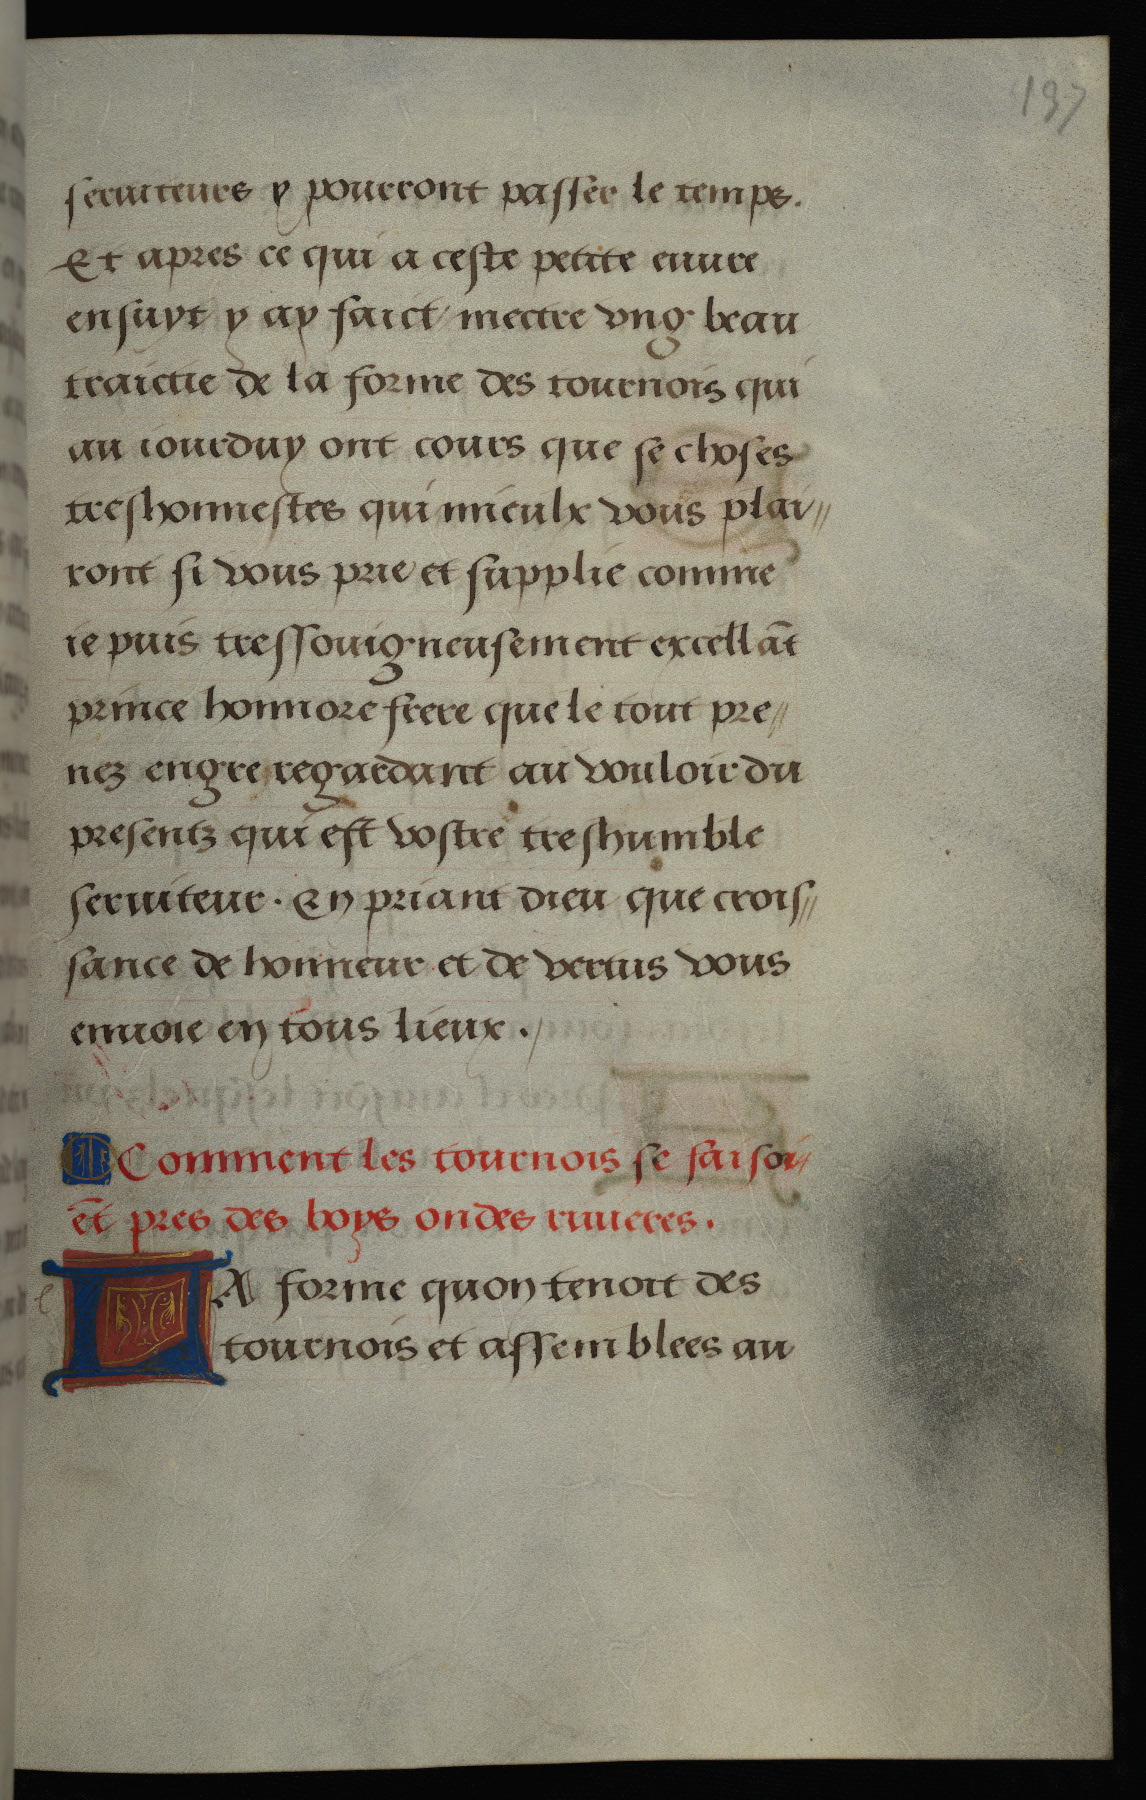 197
seruiteurs y pourront passer le temps.
Et apres ce qui a ceste petite euure
ensuyt y ay faict mectre vng beau
traictie de la forme des tournois qui
au iourduy ont cours que se choses
treshonnestes qui mieulx vous plai//
ront si vous prie et supplie comme
ie puis tressouigneusement excellãt
prince honnore frere que le tout pre//
nez engre regardant au vouloir du
presentz qui est vostre treshumble
seruiteur. En priant dieu que crois//
sance de honneur et de vertus vous
enuoie en tous lieux./
Comment les tournois se faisoi//
ẽt pres des boys ondes riuieres.
LA forme quon tenoit des
tournois et assemblees au